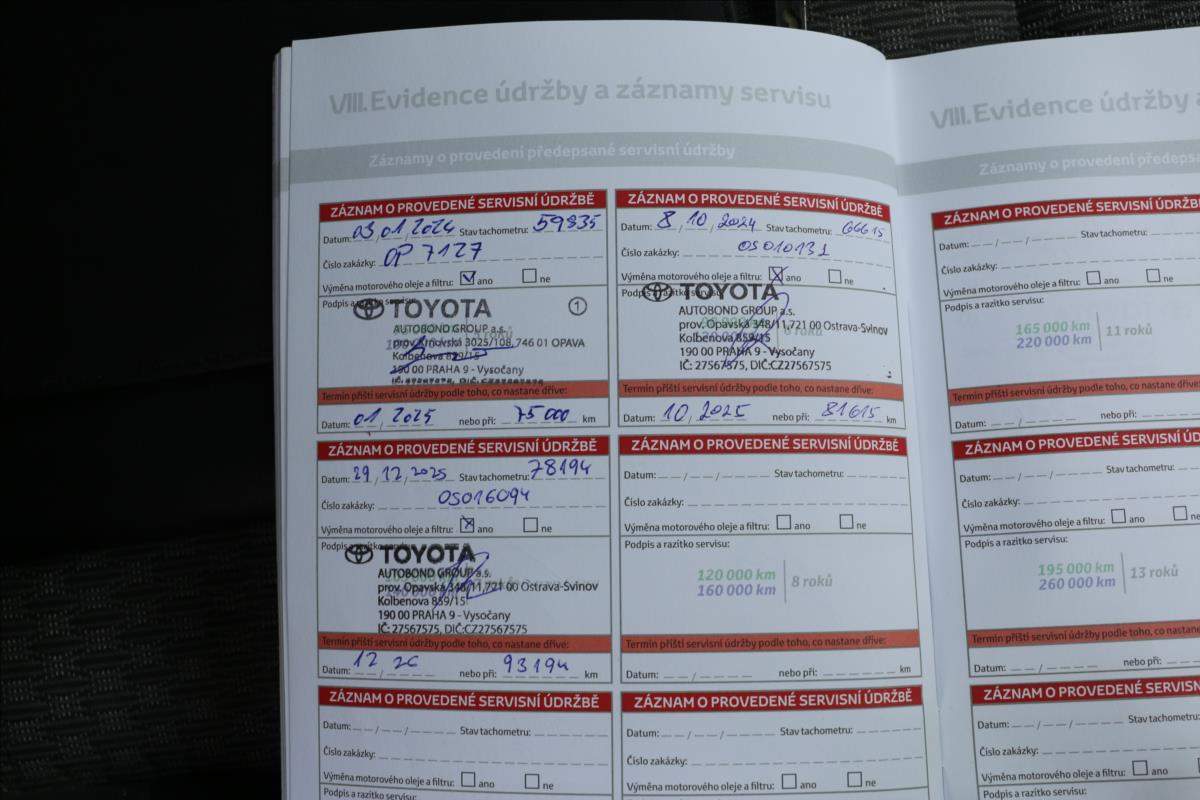 VIII. Evidence údržby a záznamy servisu
Záznamy o provedení předepsané servisní údržby
ZÁZNAM O PROVEDENÉ SERVISNÍ ÚDRŽBĚ
Datum: 03/01/2024 Stav tachometru: 59835
Číslo zakázky: OP 7127
Výměna motorového oleje a filtru: ano ne
Podpis a razítko servisu:
TOYOTA 1
AUTOBOND GROUP a.s.
prov. Krnovská 3025/108, 746 01 OPAVA
Kolbenova 859/15
190 00 PRAHA 9 - Vysočany
IČ: 27567575, DIČ:CZ27567575
Termín příští servisní údržby podle toho, co nastane dříve:
Datum: 01/2025 nebo při: 75000 km
ZÁZNAM O PROVEDENÉ SERVISNÍ ÚDRŽBĚ
Datum: 8/10/2024 Stav tachometru: 66615
Číslo zakázky: OS010131
Výměna motorového oleje a filtru: ano ne
Podpis a razítko servisu:
TOYOTA
AUTOBOND GROUP a.s.
prov. Opavská 348/11,721 00 Ostrava-Svinov
Kolbenova 859/15
190 00 PRAHA 9 - Vysočany
IČ: 27567575, DIČ:CZ27567575
Termín příští servisní údržby podle toho, co nastane dříve:
Datum: 10/2025 nebo při: 81615 km
ZÁZNAM O PROVEDENÉ SERVISNÍ ÚDRŽBĚ
Datum: 29/12/2025 Stav tachometru: 78194
Číslo zakázky: OS016094
Výměna motorového oleje a filtru: ano ne
Podpis a razítko servisu:
TOYOTA
AUTOBOND GROUP a.s.
prov. Opavská 348/11,721 00 Ostrava-Svinov
Kolbenova 859/15
190 00 PRAHA 9 - Vysočany
IČ: 27567575, DIČ:CZ27567575
Termín příští servisní údržby podle toho, co nastane dříve:
Datum: 12/26 nebo při: 93194 km
ZÁZNAM O PROVEDENÉ SERVISNÍ ÚDRŽBĚ
Datum: Stav tachometru:
Číslo zakázky:
Výměna motorového oleje a filtru: ano ne
Podpis a razítko servisu:
120 000 km
160 000 km 8 roků
Termín příští servisní údržby podle toho, co nastane dříve:
Datum: nebo při: km
ZÁZNAM O PROVEDENÉ SERVISNÍ ÚDRŽBĚ
Datum: Stav tachometru:
Číslo zakázky:
Výměna motorového oleje a filtru: ano ne
Podpis a razítko servisu:
ZÁZNAM O PROVEDENÉ SERVISNÍ ÚDRŽBĚ
Datum: Stav tachometru:
Číslo zakázky:
Výměna motorového oleje a filtru: ano ne
Podpis a razítko servisu:
VIII. Evidence údržby a
Záznamy o provedení předeps
ZÁZNAM O PROVEDENÉ SERVISNÍ ÚDRŽB
Datum: Stav tachometru:
Číslo zakázky:
Výměna motorového oleje a filtru: ano ne
Podpis a razítko servisu:
165 000 km
220 000 km 11 roků
Termín příští servisní údržby podle toho, co nastane dříve:
Datum: nebo při:
ZÁZNAM O PROVEDENÉ SERVISNÍ Ú
Datum: Stav tachometru:
Číslo zakázky:
Výměna motorového oleje a filtru: ano ne
Podpis a razítko servisu:
195 000 km
260 000 km 13 roků
Termín příští servisní údržby podle toho, co nastane
Datum: nebo při:
ZÁZNAM O PROVEDENÉ SERVISN
Datum: Stav tachom
Číslo zakázky:
Výměna motorového oleje a filtru: ano
Podpis a razítko servisu: